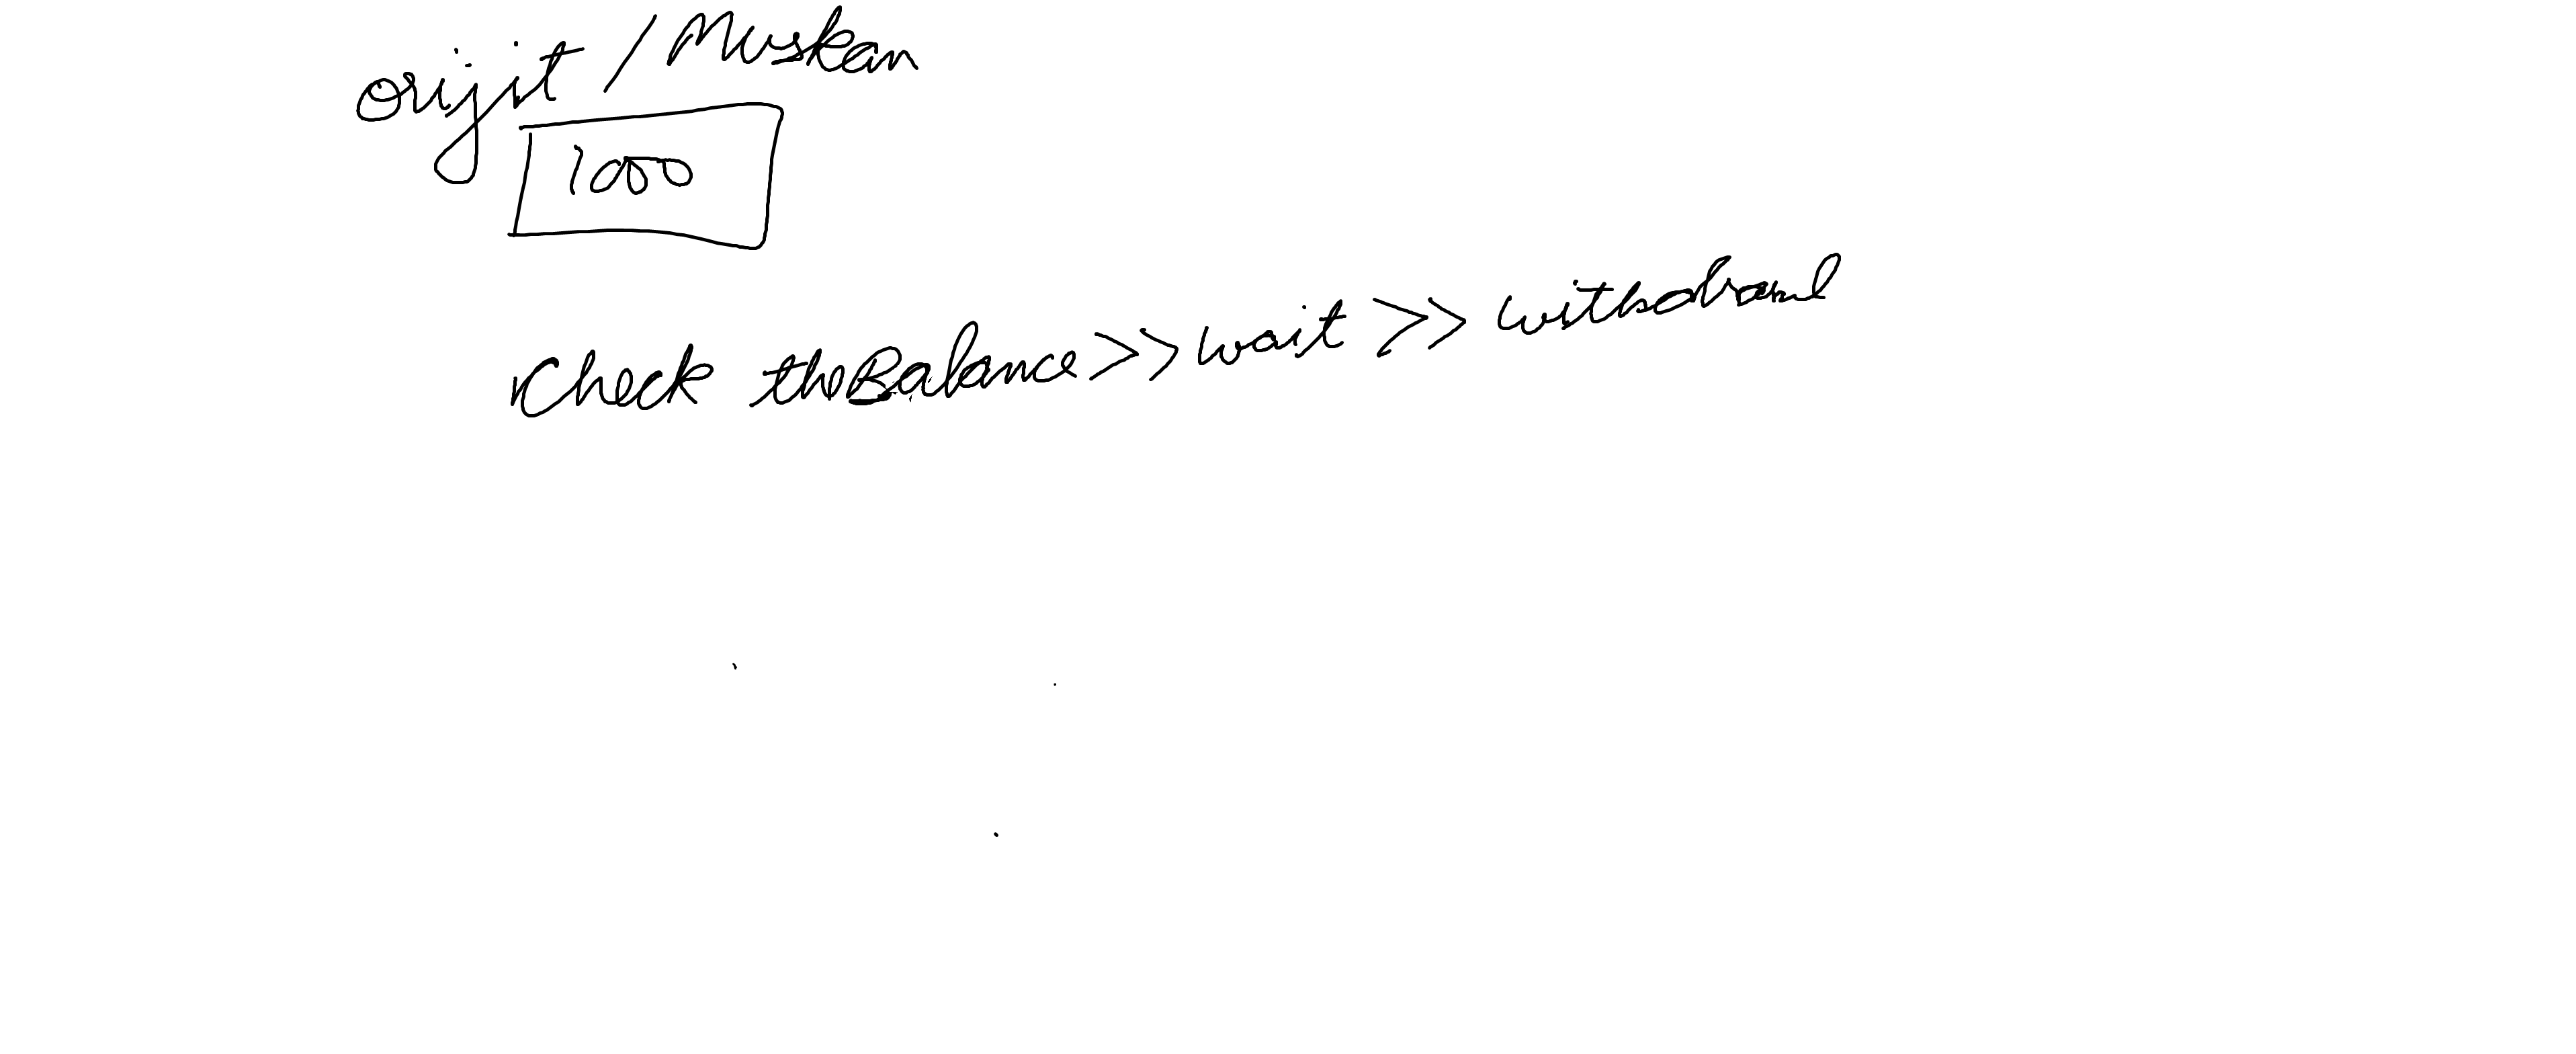 orijit / Muskan
1000
Check the Balance >> wait >> withdrawl